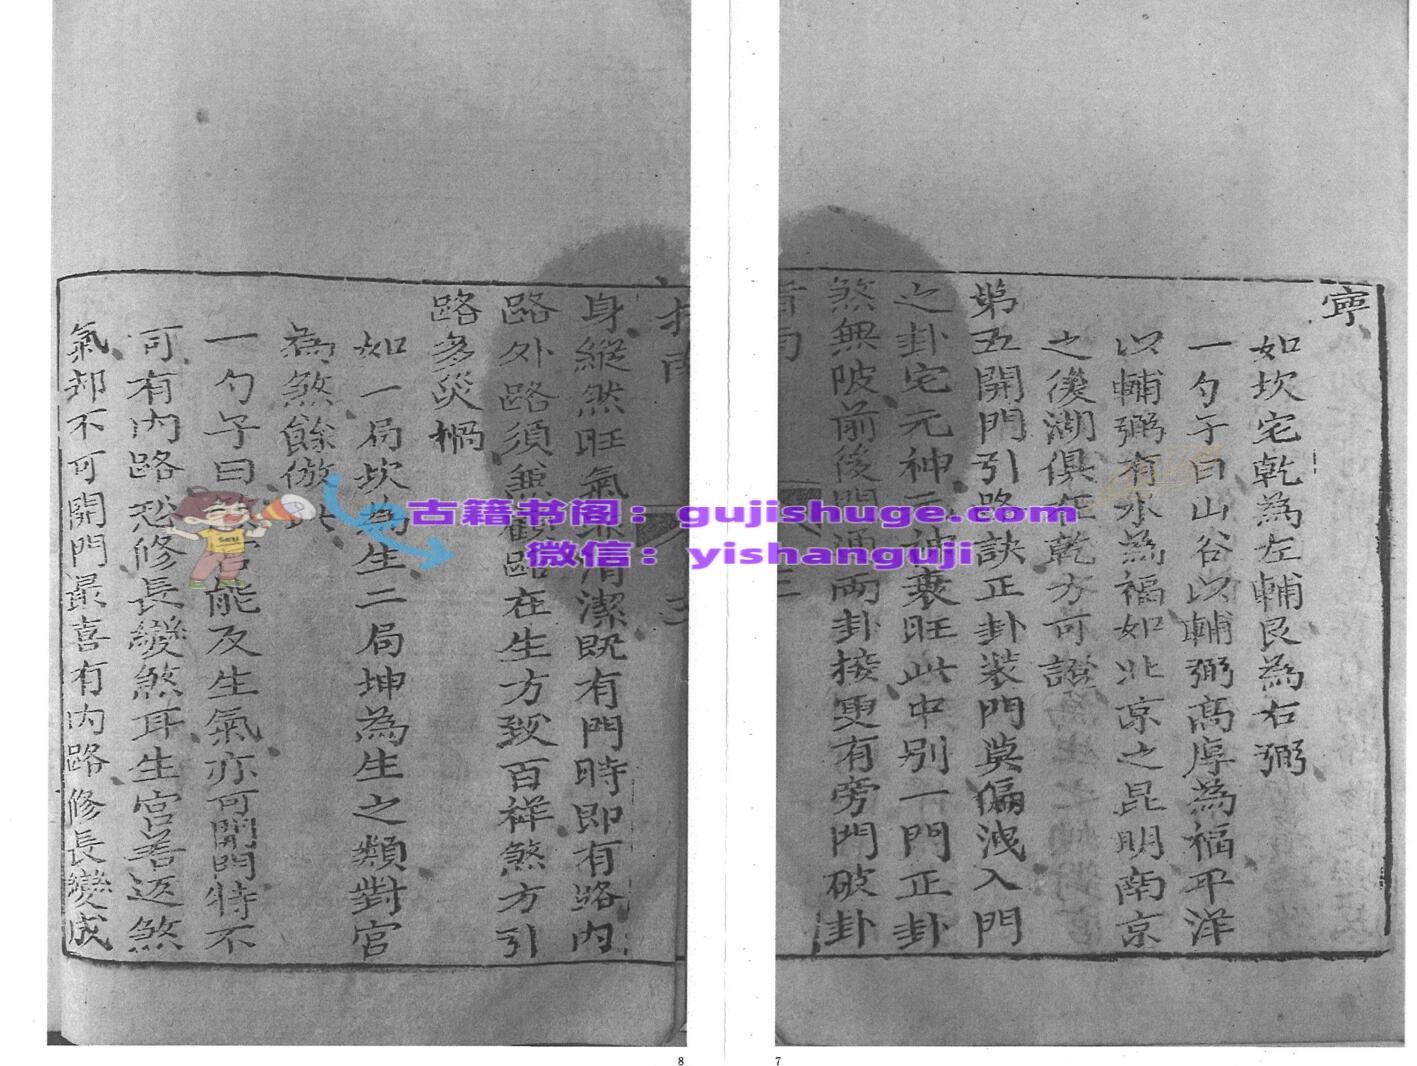 寜
如坎宅乾為左輔艮為右弼
一勺子曰山谷以輔弼高厚為福平洋
以輔弼有水為福如北京之昆明南京
之後湖俱在乾方可證
第五開門引路訣正卦装門莫偏洩入門
之卦宅元神元神衰旺此中别一門正卦
煞無陂前後門通兩卦接更有旁門破卦
指南
三
指南
身縱然旺氣清潔既有門時即有路内
路外路須兼觀路在生方致百祥煞方引
路多災禍
如一局坎為生二局坤為生之類對宫
為煞餘倣此
一勺子曰能及生氣亦可開門特不
可有内路恐修長變煞耳生宫善返煞
氣却不可開門最喜有内路修長變成
古籍书阁：gujishuge.com
微信：yishanguji
8
7